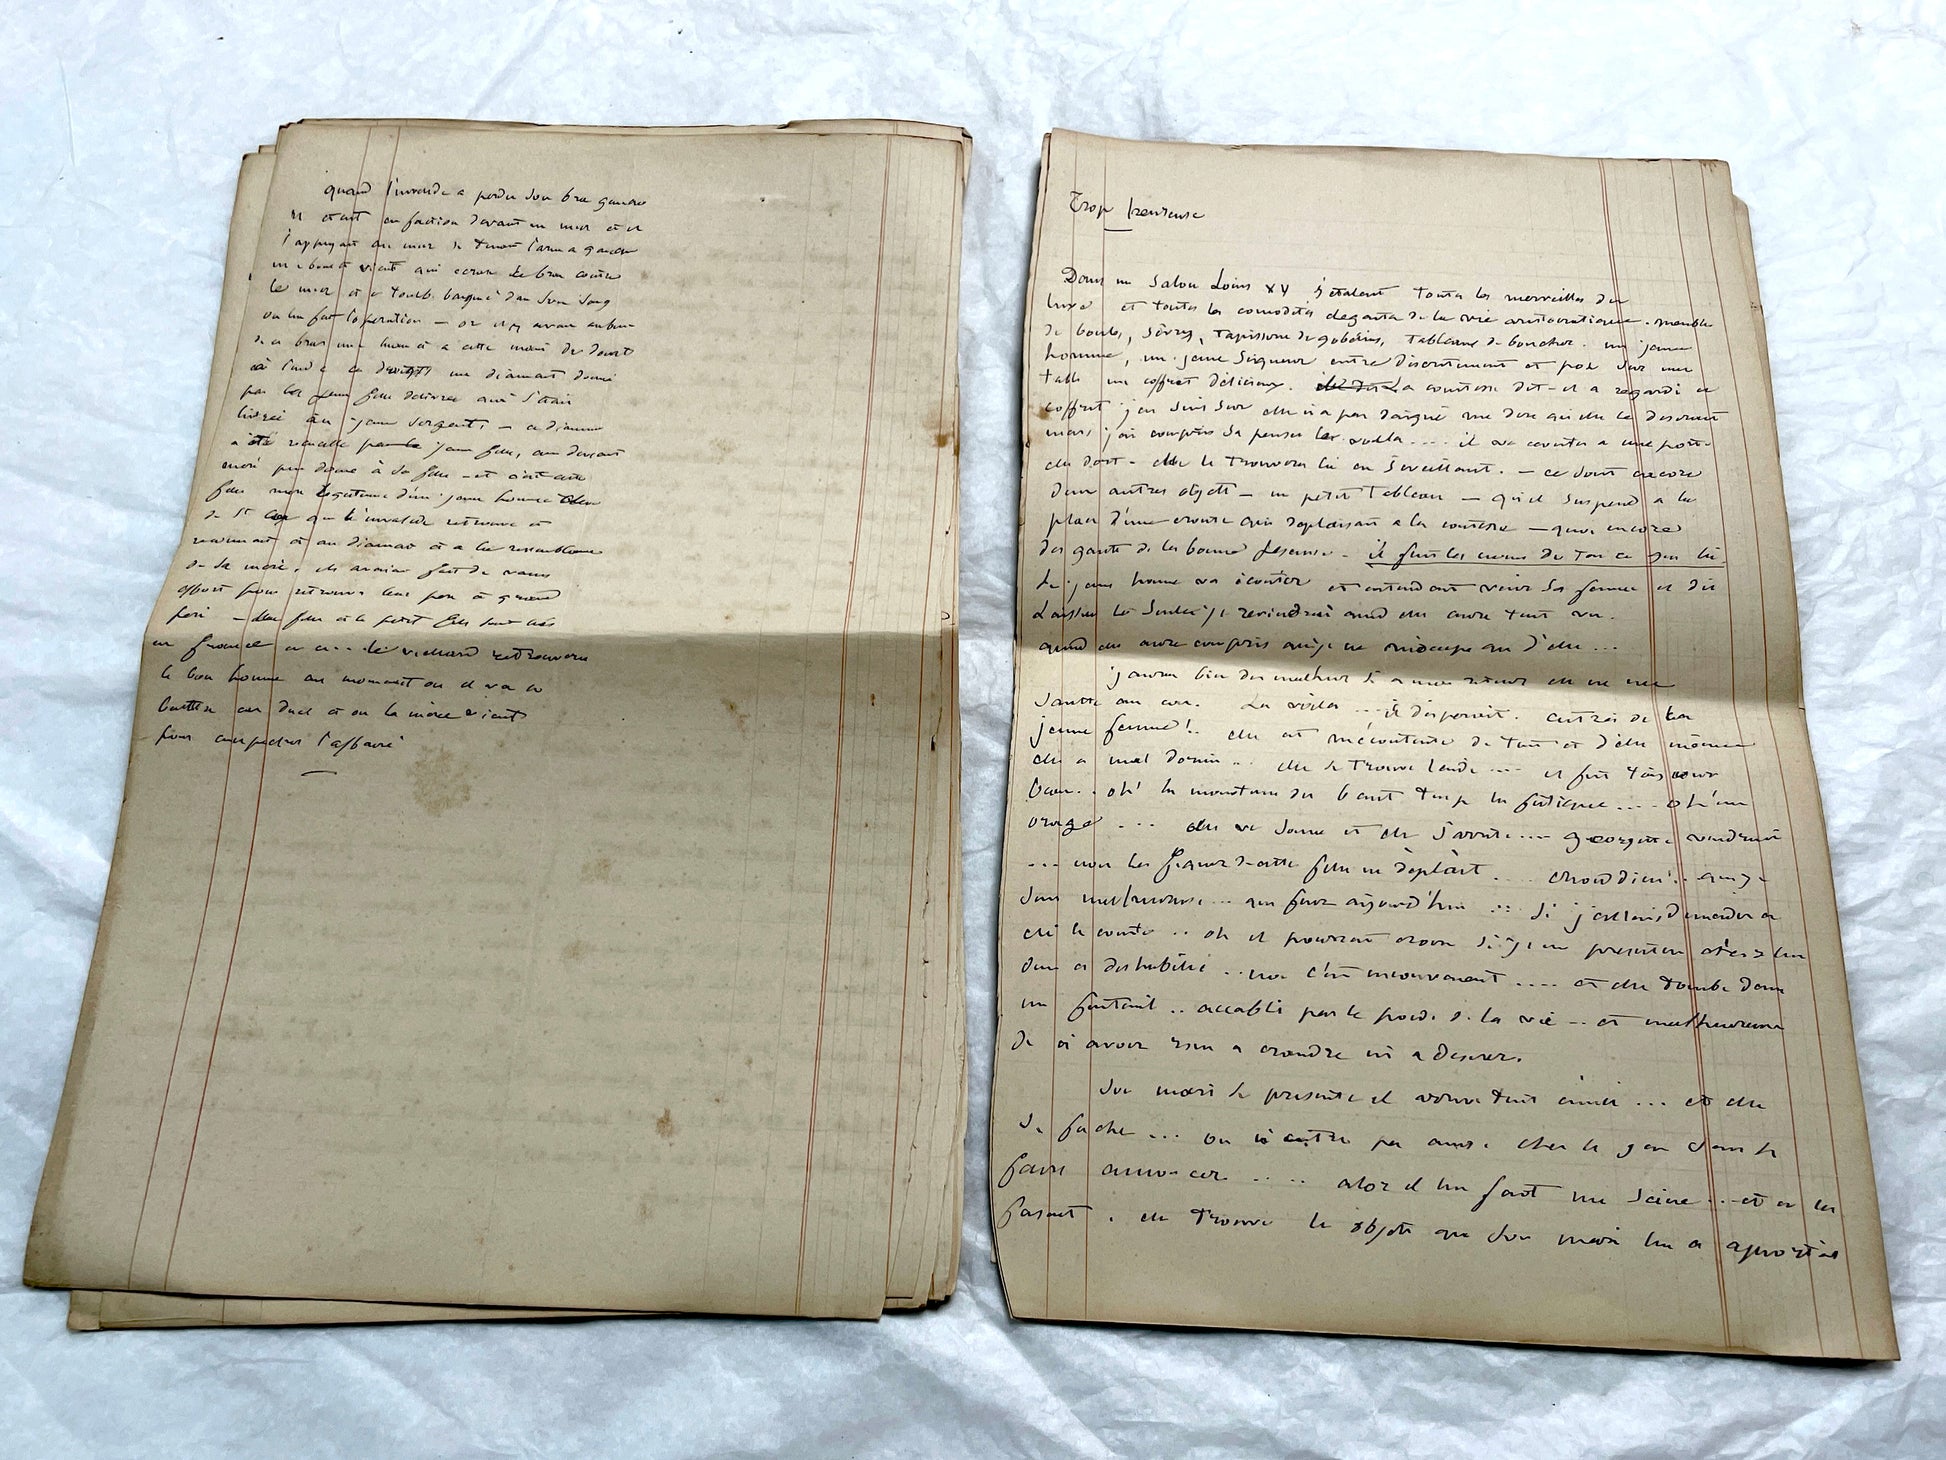 quand l'invalide a perdu son bras gauche
il etait en faction devant un mur et il
s'appuyait au mur se tenant l'arme a gauche
un boulet vient qui ecrase le bras contre
le mur et il tombe baigné dans son sang
on lui fait l'operation — or il y avait au bout
de ce bras une main et a cette main
un diamant donné
par la jeune fille delivrée qui s'était
livrée au jeune sergent. — ce diamant
a été recueilli par la jeune fille, qui devenue
mère l'a donné à sa fille — et c'est cette
fille mere legitime d'un jeune homme eleve
de St Cyr que l'invalide retrouve et
reconnait et au diamant et a la ressemblance
de sa mère. ils avaient fait de vains
efforts pour retrouver leur pere et grand
pere — la fille et le petit fils sont
en france et le vieillard retrouvera
le bon homme au moment ou il va se
battre en duel et ou la mère vient
pour empecher l'affaire
Trop heureuse
Dans un salon Louis XV s'étalent toutes les merveilles du
luxe et toutes les comodités elegantes de la vie aristocratique. meubles
de boule, Sèvres, tapisserie de gobelins, tableaux de boucher. un jeune
homme, un jeune seigneur entre discretement et pose sur une
table un coffret délicieux. la comtesse dit-il a regardé ce
coffret j'en suis sur elle n'a pas daigné me dire qu'elle le desirait
mais j'ai compris sa pensee le voila .... il va ecouter a une porte
elle dort — elle le trouvera là en s'eveillant. — ce sont encore
deux autres objets — un petit tableau — qu'il suspend a la
place d'une croute qui deplaisait a la comtesse — quoi encore
des gants de la bonne faiseuse — il fait les noms de tout ce qu'on lit
le jeune homme va écouter et entendant venir sa femme il dit
Laissons la seule, je reviendrai quand elle aura tout vu.
quand elle aura compris que je ne m'occupe que d'elle ...
j'aurai bien du malheur si a mon retour elle ne me
saute au cou. La voila ... il disparait. entrée de la
jeune femme! .. elle est mécontente de tout et d'elle même
elle a mal dormi .. elle se trouve laide .... il fait très
beau .. oh! la monotonie du beau temps la fatigue .... oh! un
orage .... elle va sonner et elle s'arrete .... georgette viendrait
... non la figure de cette fille me déplait .... mon dieu! .. que je
suis malheureuse ... que faire aujourd'hui ... si j'allais demander a
le comte .. oh il pourrait croire si je me presentais chez lui
dans ce deshabillé .. non c'est inconvenant .... et elle tombe dans
un fauteuil .. accablée par le poids de la vie .. et malheureuse
de n'avoir rien a craindre ni a desirer.
Son mari se presente il arrive tout emu ... et elle
se fache ... on n'entre pas ainsi chez les gens sans se
faire annoncer .... alors il lui fait une scène ... et en la
faisant, elle trouve les objets que son mari lui a aportés